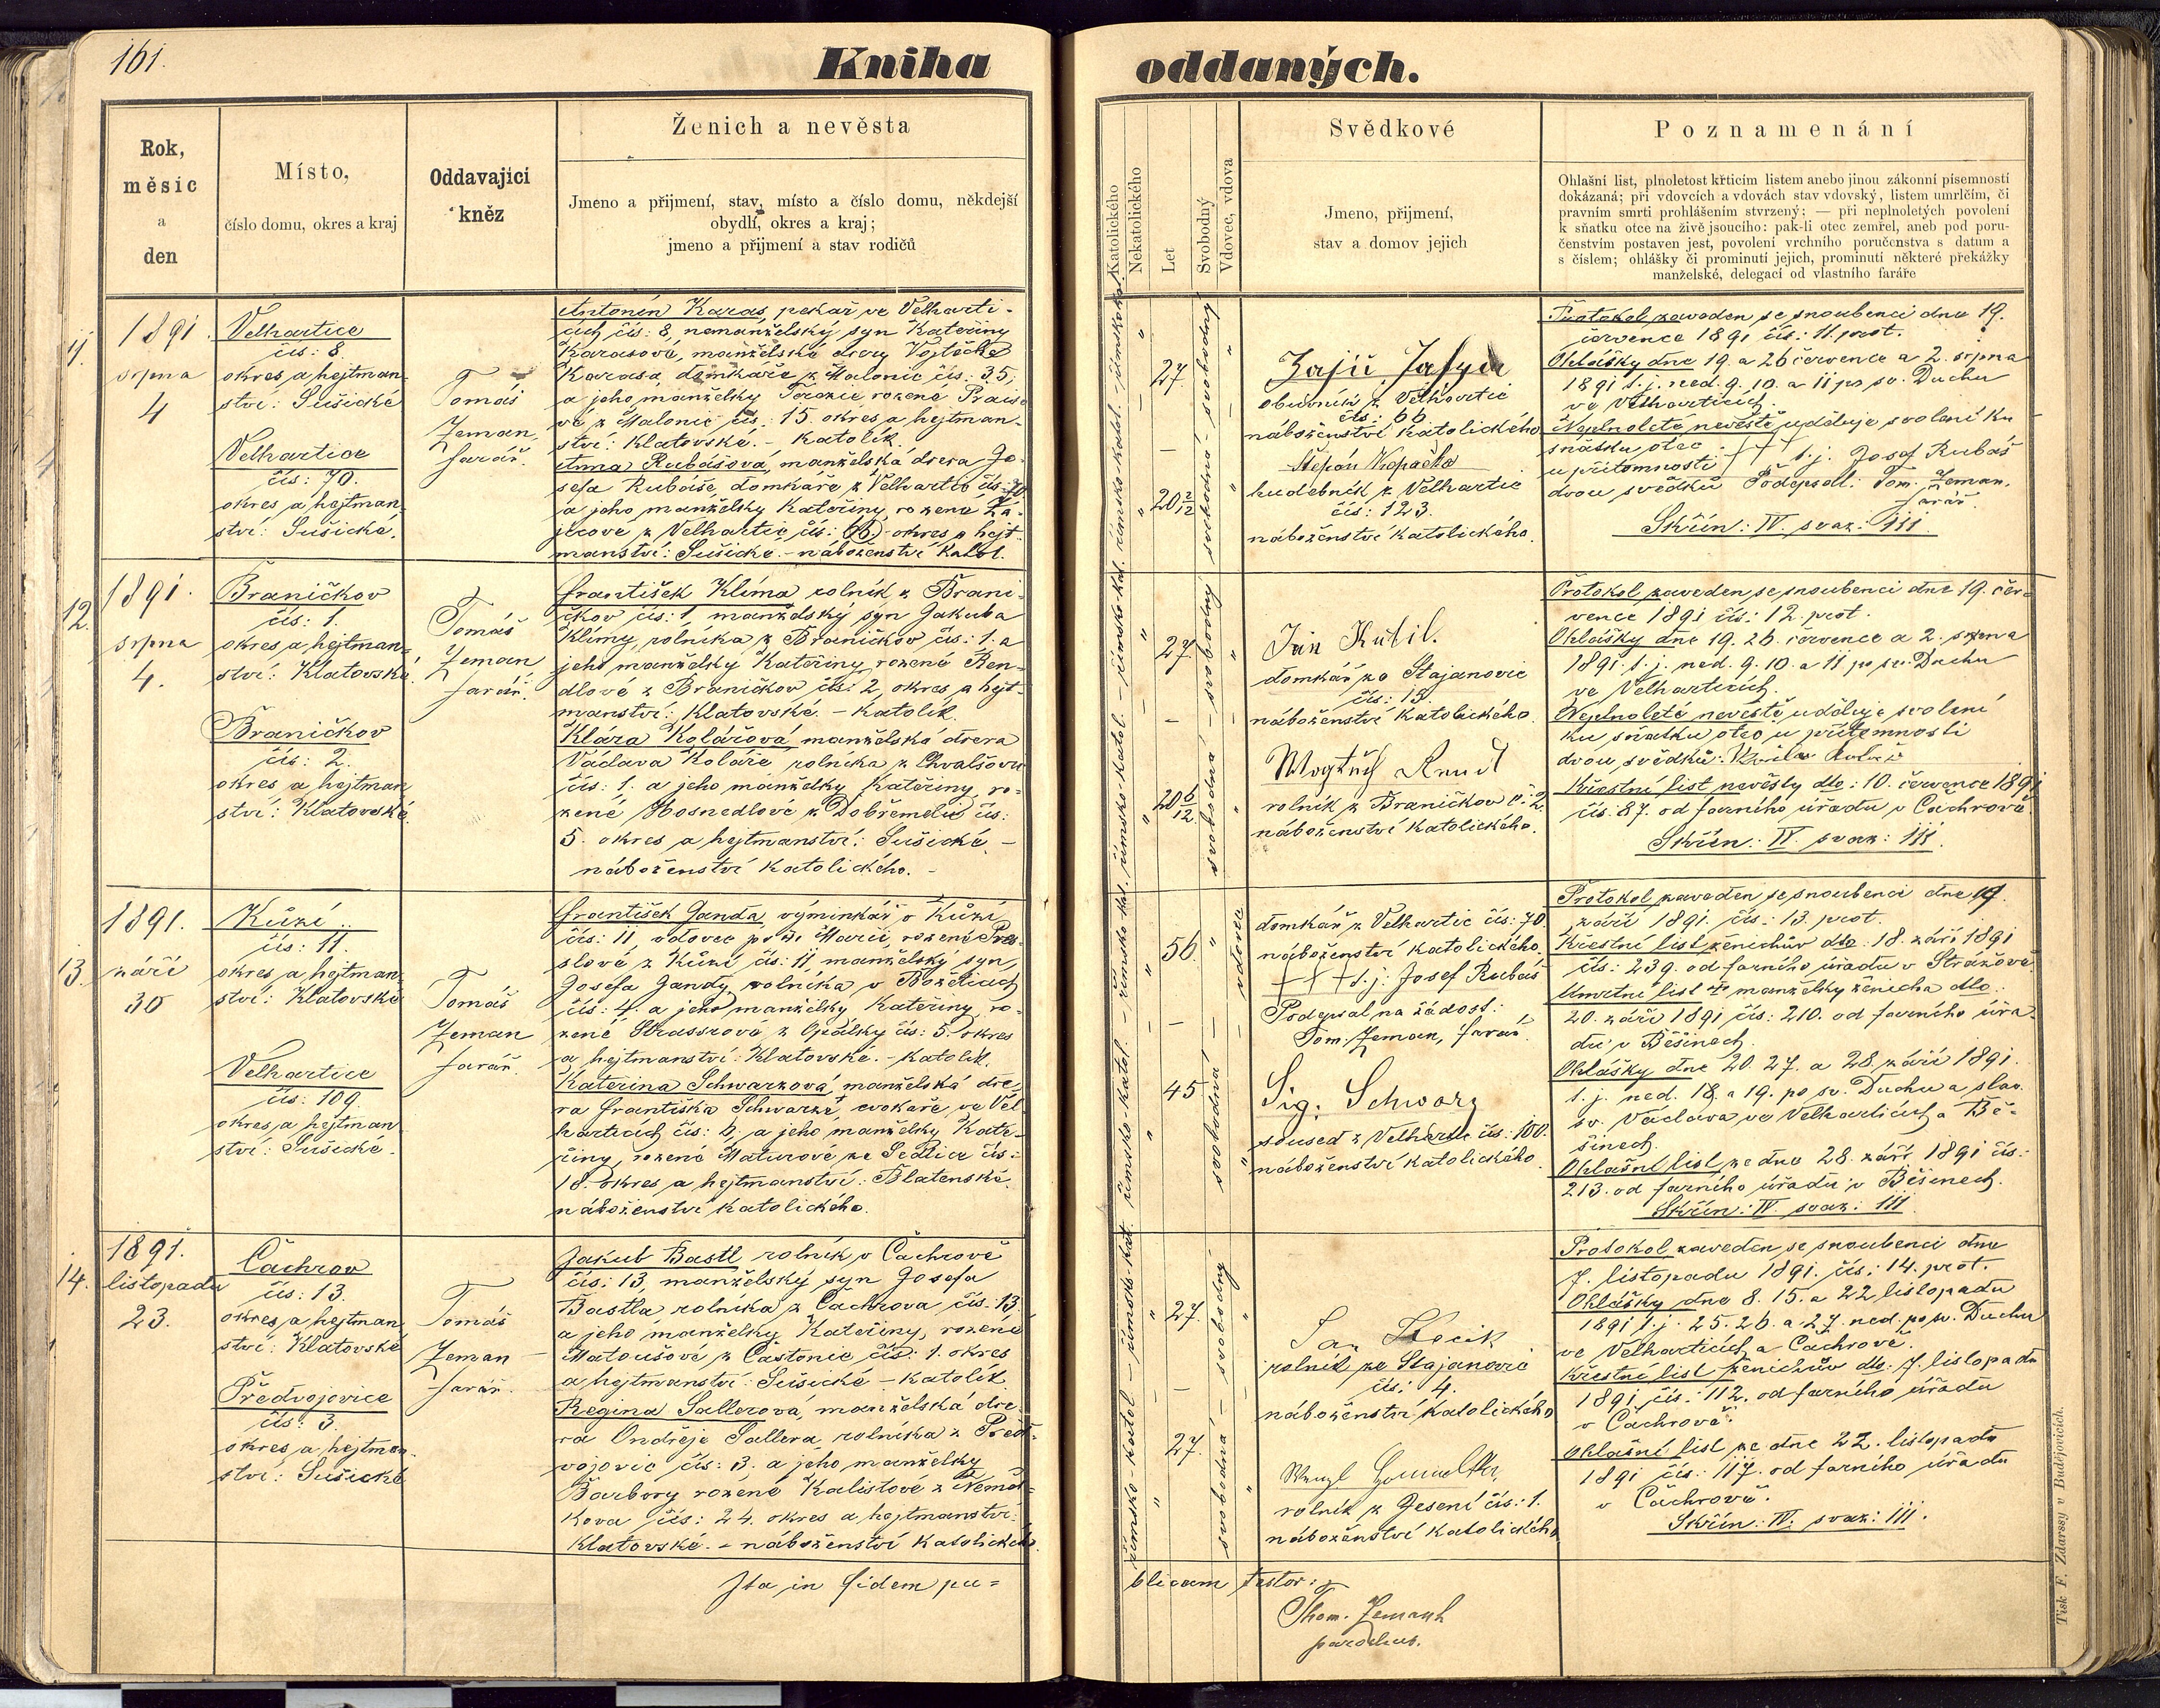 161.
Kniha oddaných.
Rok,
měsíc
a
den
Místo,
číslo domu, okres a kraj
Oddavající
kněz
Ženich a nevěsta
Jmeno a přijmení, stav, místo a číslo domu, někdejší
obydlí, okres a kraj;
jmeno a přijmení a stav rodičů
Katolického
Nekatolického
Let
Svobodný
Vdovec, vdova
Svědkové
Jmeno, přijmení,
stav a domov jejich
Poznamenání
Ohlašní list, plnoletost křticím listem anebo jinou zákonní písemností
dokázaná; při vdovcích a vdovách stav vdovský, listem umrlčím, či
pravním smrti prohlášením stvrzený; — při neplnoletých povolení
k sňatku otce na živě jsoucího: pak-li otec zemřel, aneb pod poru-
čenstvím postaven jest, povolení vrchního poručenstva s datum a
s číslem; ohlášky či prominutí jejich, prominutí některé překážky
manželské, delegací od vlastního faráře
11.
1891.
srpna
4
Velhartice
čís: 8.
okres a hejtman-
ství: Sušické
Velhartice
čís: 70.
okres a hejtman-
ství: Sušické.
Tomáš
Zeman,
farář.
Antonín Karas, pekař ve Velharti-
cích čís: 8, nemanželský syn Kateřiny
Karasové, manželské dcery Vojtěcha
Karasa, domkáře z Malonic čís: 35,
a jeho manželky Terezie rozené
vé z Malonic čís: 15. okres a hejtman-
ství: Klatovské. - Katolík.
Anna Rubášová, manželská dcera Jo-
sefa Rubáše, domkáře z Velhartic čís: 70
a jeho manželky Kateřiny, rozené Za-
jícové z Velhartic, čís: 66. okres a hejt-
manství: Sušické. - náboženství katol.
římsko-katol. - římského
27
svobodný
římsko-kat.
20 2/12
svobodná
obuvník z Velhartic
čís: 66
náboženství katolického
Štěpán Kopačka
hudebník z Velhartic
čís: 123.
náboženství katolického.
Protokol zaveden se snoubenci dne 19.
července 1891 čís: 11. prot.
Ohlášky dne 19. a 26 července a 2. srpna
1891 t. j. ned. 9. 10. a 11 po sv. Duchu
ve Velharticích.
Neplnoleté nevěstě uděluje svolení ku
sňatku otec
u přítomnosti +++ t. j. Josef Rubáš
dvou svědků Podepsal: Tom. Zeman,
farář.
Skřín: IV. svaz: III.
12.
1891.
srpna
4.
Braničkov
čís: 1.
okres a hejtman-
ství: Klatovské.
Braničkov
čís: 2.
okres a hejtman
ství: Klatovské
Tomáš
Zeman
farář.
František Klíma rolník z Brani-
čkov čís: 1, manželský syn Jakuba
Klímy, rolníka z Braničkov čís: 1. a
jeho manželky Kateřiny, rozené Ren-
dlové z Braničkov čís: 2, okres a hejt-
manství: Klatovské. - Katolík.
Klára Kolářová, manželská dcera
Václava Koláře rolníka z Chvalšovic
čís: 1. a jeho manželky Kateřiny, ro-
zené Hosnedlové z Dobřemělic čís:
5. okres a hejtmanství: Sušické. -
náboženství katolického. -
římsko-katol. - římsko-katol.
27.
svobodný
římsko-kat.
20 6/12
svobodná
Jan Kubil.
domkář ze Stajanovic
čís: 15.
náboženství katolického.
rolník z Braničkov č: 2
náboženství katolického.
Protokol zaveden se snoubenci dne 19. čer-
vence 1891 čís: 12. prot.
Ohlášky dne 19. 26. července a 2. srpna
1891. t. j. ned. 9. 10. a 11 po sv. Duchu
ve Velharticích.
Neplnoleté nevěstě uděluje svolení
ku sňatku otec u přítomnosti
dvou svědků:
Křestní list nevěsty dto: 10. července 1891
čís: 87. od farního úřadu v Čachrově
Skřín: IV. svaz: III.
13.
1891.
září
30
Kůzí
čís: 11.
okres a hejtman-
ství: Klatovské
Velhartice
čís: 109.
okres a hejtman
ství: Sušické.
Tomáš
Zeman
farář.
František Janda, výminkář v Kůzí
čís: 11, vdovec po † Marii, rozené Pres-
slové z Kůzí čís: 11, manželský syn
Josefa Jandy, rolníka v Božeticích
čís: 4. a jeho manželky Kateřiny, ro-
zené Strassrové z Opálky čís: 5. okres
a hejtmanství: Klatovské. - Katolík.
Kateřina Schwarzová, manželská dce-
ra Františka Schwarze, cvokaře, ve Vel-
harticích čís: 6, a jeho manželky Kate-
řiny, rozené Maturové ze Sedlice čís:
18. okres a hejtmanství: Blatenské.
náboženství katolického.
římsko-katol. - římsko-kat.
56.
vdovec
45
svobodná
domkář z Velhartic čís: 70.
náboženství katolického.
+++ t. j. Josef Rubáš
Podepsal na žádost:
Tom. Zeman, farář.
Sig. Schwarz
soused z Velhartic čís: 100.
náboženství katolického.
Protokol zaveden se snoubenci dne 19.
září 1891. čís: 13. prot.
Křestní list ženichův dto. 18. září 1891
čís: 239. od farního úřadu v Strážově
Úmrtní list † manželky ženicha dto.
20. září 1891 čís: 210. od farního úřa-
du v Běšinech.
Ohlášky dne 20. 27. a 28. září 1891.
t. j. ned. 18. a 19. po sv. Duchu a slav.
sv. Václava ve Velharticích a Bě-
šinech.
Ohlašní list ze dne 28. září 1891 čís:
213. od farního úřadu v Běšinech.
Skřín: IV. svaz: III
14.
1891.
listopadu
23.
Čachrov
čís: 13.
okres a hejtman
ství: Klatovské
Předvojovice
čís: 3.
okres a hejtman-
ství: Sušické
Tomáš
Zeman
farář.
Jakub Bastl, rolník v Čachrově
čís: 13, manželský syn Josefa
Bastla, rolníka z Čachrova čís: 13.
a jeho manželky Kateřiny, rozené
Matoušové z Častonic čís: 1. okres
a hejtmanství: Sušické - Katolík
Regina Sallerová, manželská dce-
ra Ondřeje Sallera, rolníka z Před-
vojovic čís: 3. a jeho manželky
Barbory rozené Kalistové z Němč-
kova čís: 24. okres a hejtmanství:
Klatovské. - náboženství katolického.
římsko-katol. - římsko-kat.
27.
svobodný
27.
svobodná
Jan Kocik
rolník ze Stajanovic
čís: 4.
náboženství katolického
rolník z Jesení čís: 1.
náboženství katolického
Protokol zaveden se snoubenci dne
7. listopadu 1891. čís: 14. prot.
Ohlášky dne 8. 15. a 22 listopadu
1891 t. j. 25. 26. a 27. ned. po sv. Duchu
ve Velharticích a Čachrově.
Křestní list ženichův dto: 7. listopadu
1891 čís: 112. od farního úřadu
v Čachrově.
Ohlašní list ze dne 22. listopadu
1891 čís: 117. od farního úřadu
v Čachrově.
Skřín: IV. svaz: III.
Ita in fidem pu=
blicam testor:
Thom. Zemann
parochus.
Tisk F. Zdarssy v Budějovicích.